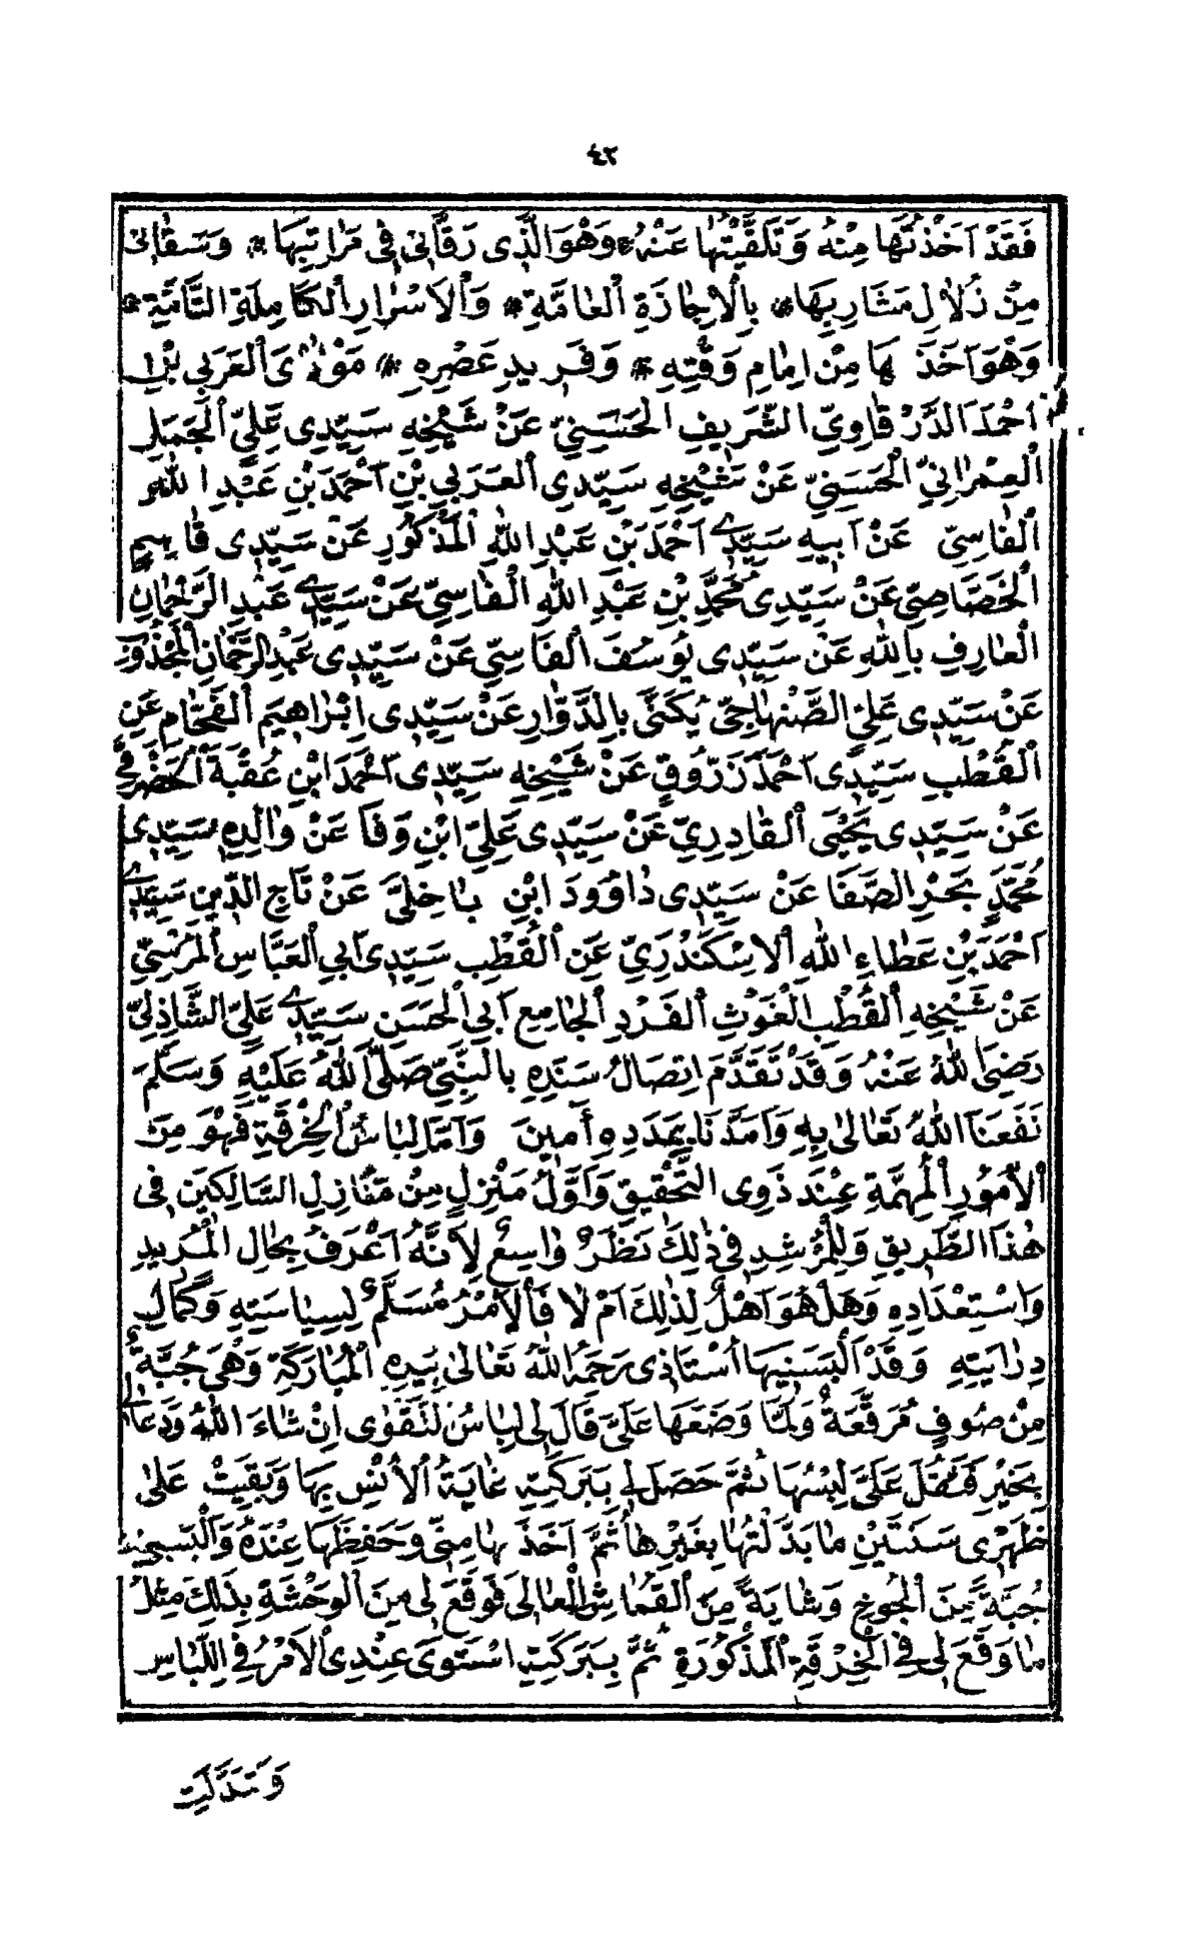 ٤٢
فَقَدْ اَخَذْتُهَا مِنْهُ وَتَلَقَّيْتُهَا عَنْهُ * وَهُوَ الَّذِى رَقَّانِى فِى مَرَاتِبِهَا * وَسَقَانِى
مِنْ زُلَالِ مَشَارِبِهَا * بِالْاِجَازَةِ الْعَامَّةِ * وَالْاَسْرَارِ الْكَامِلَةِ التَّامَّةِ *
وَهُوَ اَخَذَ بِهَا مِنْ اِمَامِ وَقْتِهِ * وَفَرِيدِ عَصْرِهِ * مَوْلَاىَ الْعَرَبِي بْنِ
اَحْمَدَ الدَّرْقَاوِيِّ الشَّرِيفِ الْحَسَنِيِّ عَنْ شَيْخِهِ سَيِّدِى عَلِيِّ الْجَمَلِ
الْعِمْرَانِيِّ الْحَسَنِيِّ عَنْ شَيْخِهِ سَيِّدِى الْعَرَبِي بْنِ اَحْمَدَ بْنِ عَبْدِ اللّٰهِ
الْفَاسِيِّ عَنْ اَبِيهِ سَيِّدِى اَحْمَدَ بْنِ عَبْدِ اللّٰهِ الْمَذْكُورِ عَنْ سَيِّدِى قَاسِمٍ
الْخَصَاصِيِّ عَنْ سَيِّدِى مُحَمَّدِ بْنِ عَبْدِ اللّٰهِ الْفَاسِيِّ عَنْ سَيِّدِى عَبْدِ الرَّحْمَانِ
الْعَارِفِ بِاللّٰهِ عَنْ سَيِّدِى يُوسُفَ الْفَاسِيِّ عَنْ سَيِّدِى عَبْدِ الرَّحْمَانِ الْمَجْذُوبِ
عَنْ سَيِّدِى عَلِيِّ الصَّنْهَاجِىِّ يُكَنَّى بِالدَّوَّارِ عَنْ سَيِّدِى اِبْرَاهِيمَ الْفَحَّامِ عَنِ
الْقُطْبِ سَيِّدِى اَحْمَدَ زَرُّوقٍ عَنْ شَيْخِهِ سَيِّدِى اَحْمَدَ ابْنِ عُقْبَةَ الْحَضْرَمِيِّ
عَنْ سَيِّدِى يَحْيَى الْقَادِرِيِّ عَنْ سَيِّدِى عَلِيِّ ابْنِ وَفَا عَنْ وَالِدِهِ سَيِّدِى
مُحَمَّدٍ بَحْرِ الصَّفَا عَنْ سَيِّدِى دَاوُودَ ابْنِ بَاخِلَىَّ عَنْ تَاجِ الدِّينِ سَيِّدِى
اَحْمَدَ بْنِ عَطَاءِ اللّٰهِ الْاِسْكَنْدَرِيِّ عَنِ الْقُطْبِ سَيِّدِى اَبِي الْعَبَّاسِ الْمُرْسِيِّ
عَنْ شَيْخِهِ الْقُطْبِ الْغَوْثِ الْفَرْدِ الْجَامِعِ اَبِي الْحَسَنِ سَيِّدِى عَلِيِّ الشَّاذِلِيِّ
رَضِىَ اللّٰهُ عَنْهُ وَقَدْ تَقَدَّمَ اتِّصَالُ سَنَدِهِ بِالنَّبِيِّ صَلَّى اللّٰهُ عَلَيْهِ وَسَلَّمَ
نَفَعَنَا اللّٰهُ تَعَالٰى بِهِ وَاَمَدَّنَا بِمَدَدِهِ اٰمِينَ وَاَمَّا لِبَاسُ الْخِرْقَةِ فَهُوَ مِنَ
الْاُمُورِ الْمُهِمَّةِ عِنْدَ ذَوِى التَّحْقِيقِ وَاَوَّلُ مَنْزِلٍ مِنْ مَنَازِلِ السَّالِكِينَ فِى
هٰذَا الطَّرِيقِ وَلِلْمُرْشِدِ فِي ذٰلِكَ نَظَرٌ وَاسِعٌ لِاَنَّهُ اَعْرَفُ بِحَالِ الْمُرِيدِ
وَاسْتِعْدَادِهِ وَهَلْ هُوَ اَهْلٌ لِذٰلِكَ اَمْ لَا فَالْاَمْرُ مُسَلَّمٌ لِسِيَاسَتِهِ وَكَمَالِ
دِرَايَتِهِ وَقَدْ اَلْبَسَنِيهَا اُسْتَاذِى رَحِمَهُ اللّٰهُ تَعَالٰى بِيَدِهِ الْمُبَارَكَةِ وَهِىَ جُبَّةٌ
مِنْ صُوفٍ مُرَقَّعَةٌ وَلَمَّا وَضَعَهَا عَلَىَّ قَالَ لِى لِبَاسُ التَّقْوٰى اِنْ شَاءَ اللّٰهُ وَدَعَا لِى
بِخَيْرٍ فَثَقُلَ عَلَىَّ لُبْسُهَا ثُمَّ حَصَلَ لِى بِبَرَكَتِهِ غَايَةُ الْاُنْسِ بِهَا وَبَقِيَتْ عَلٰى
ظَهْرِى سَنَتَيْنِ مَا بَدَّلْتُهَا بِغَيْرِهَا ثُمَّ اَخَذَهَا مِنِّى وَحَفِظَهَا عِنْدَهُ وَاَلْبَسَنِى
جُبَّةً مِنَ الْجُوخِ وَشَايَةً مِنَ الْقُمَاشِ الْعَالِى فَوَقَعَ لِى مِنَ الْوَحْشَةِ بِذٰلِكَ مِثْلُ
مَا وَقَعَ لِى فِى الْخِرْقَةِ الْمَذْكُورَةِ ثُمَّ بِبَرَكَتِهِ اسْتَوَى عِنْدِى الْاَمْرُ فِى اللِّبَاسِ
وَتَبَدَّلَتْ